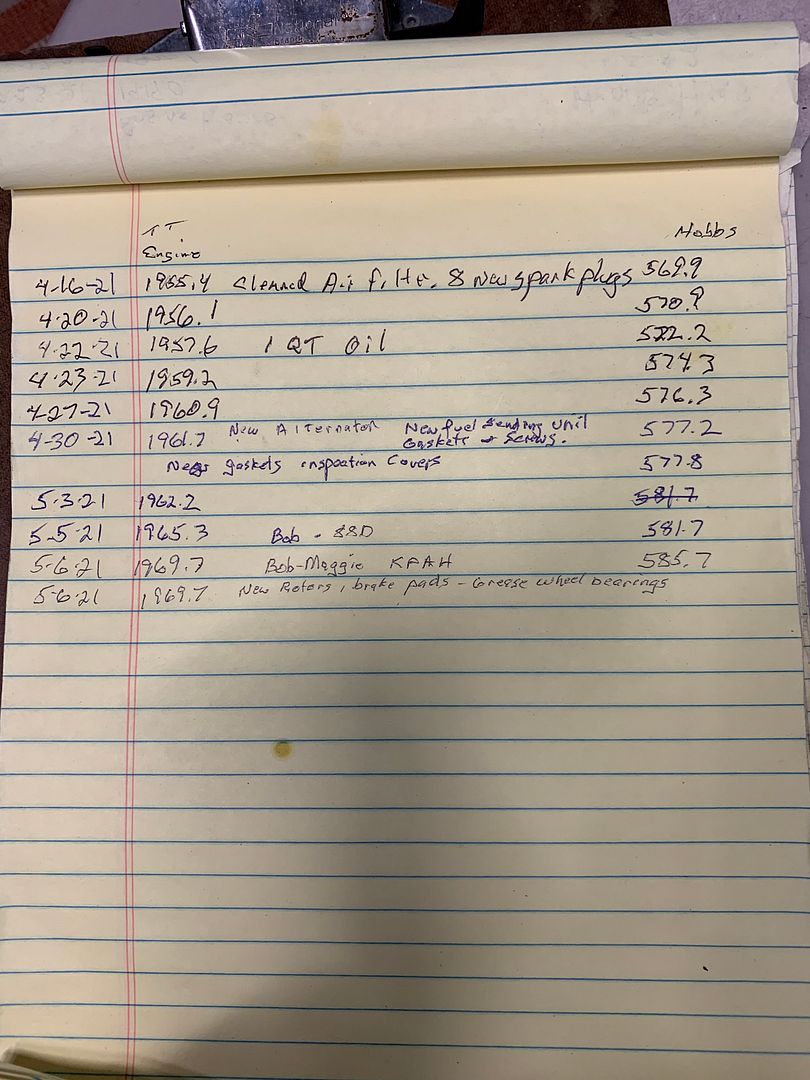 TT
Engine Hobbs
4-16-21 1955.4 Cleaned Air Filter & New spark plugs 569.9
4-20-21 1956.1 570.9
4-22-21 1957.6 1 QT Oil 522.2
4-23-21 1959.2 574.3
4-27-21 1960.9 576.3
4-30-21 1961.7 New Alternator New fuel Sending unit 577.2
Gaskets & Screws.
New gaskets inspection Covers 577.8
5-3-21 1962.2 581.7
5-5-21 1965.3 Bob - 88D 581.7
5-6-21 1969.7 Bob-Maggie KPAH 585.7
5-6-21 1969.7 New Rotors, brake pads - Grease wheel bearings